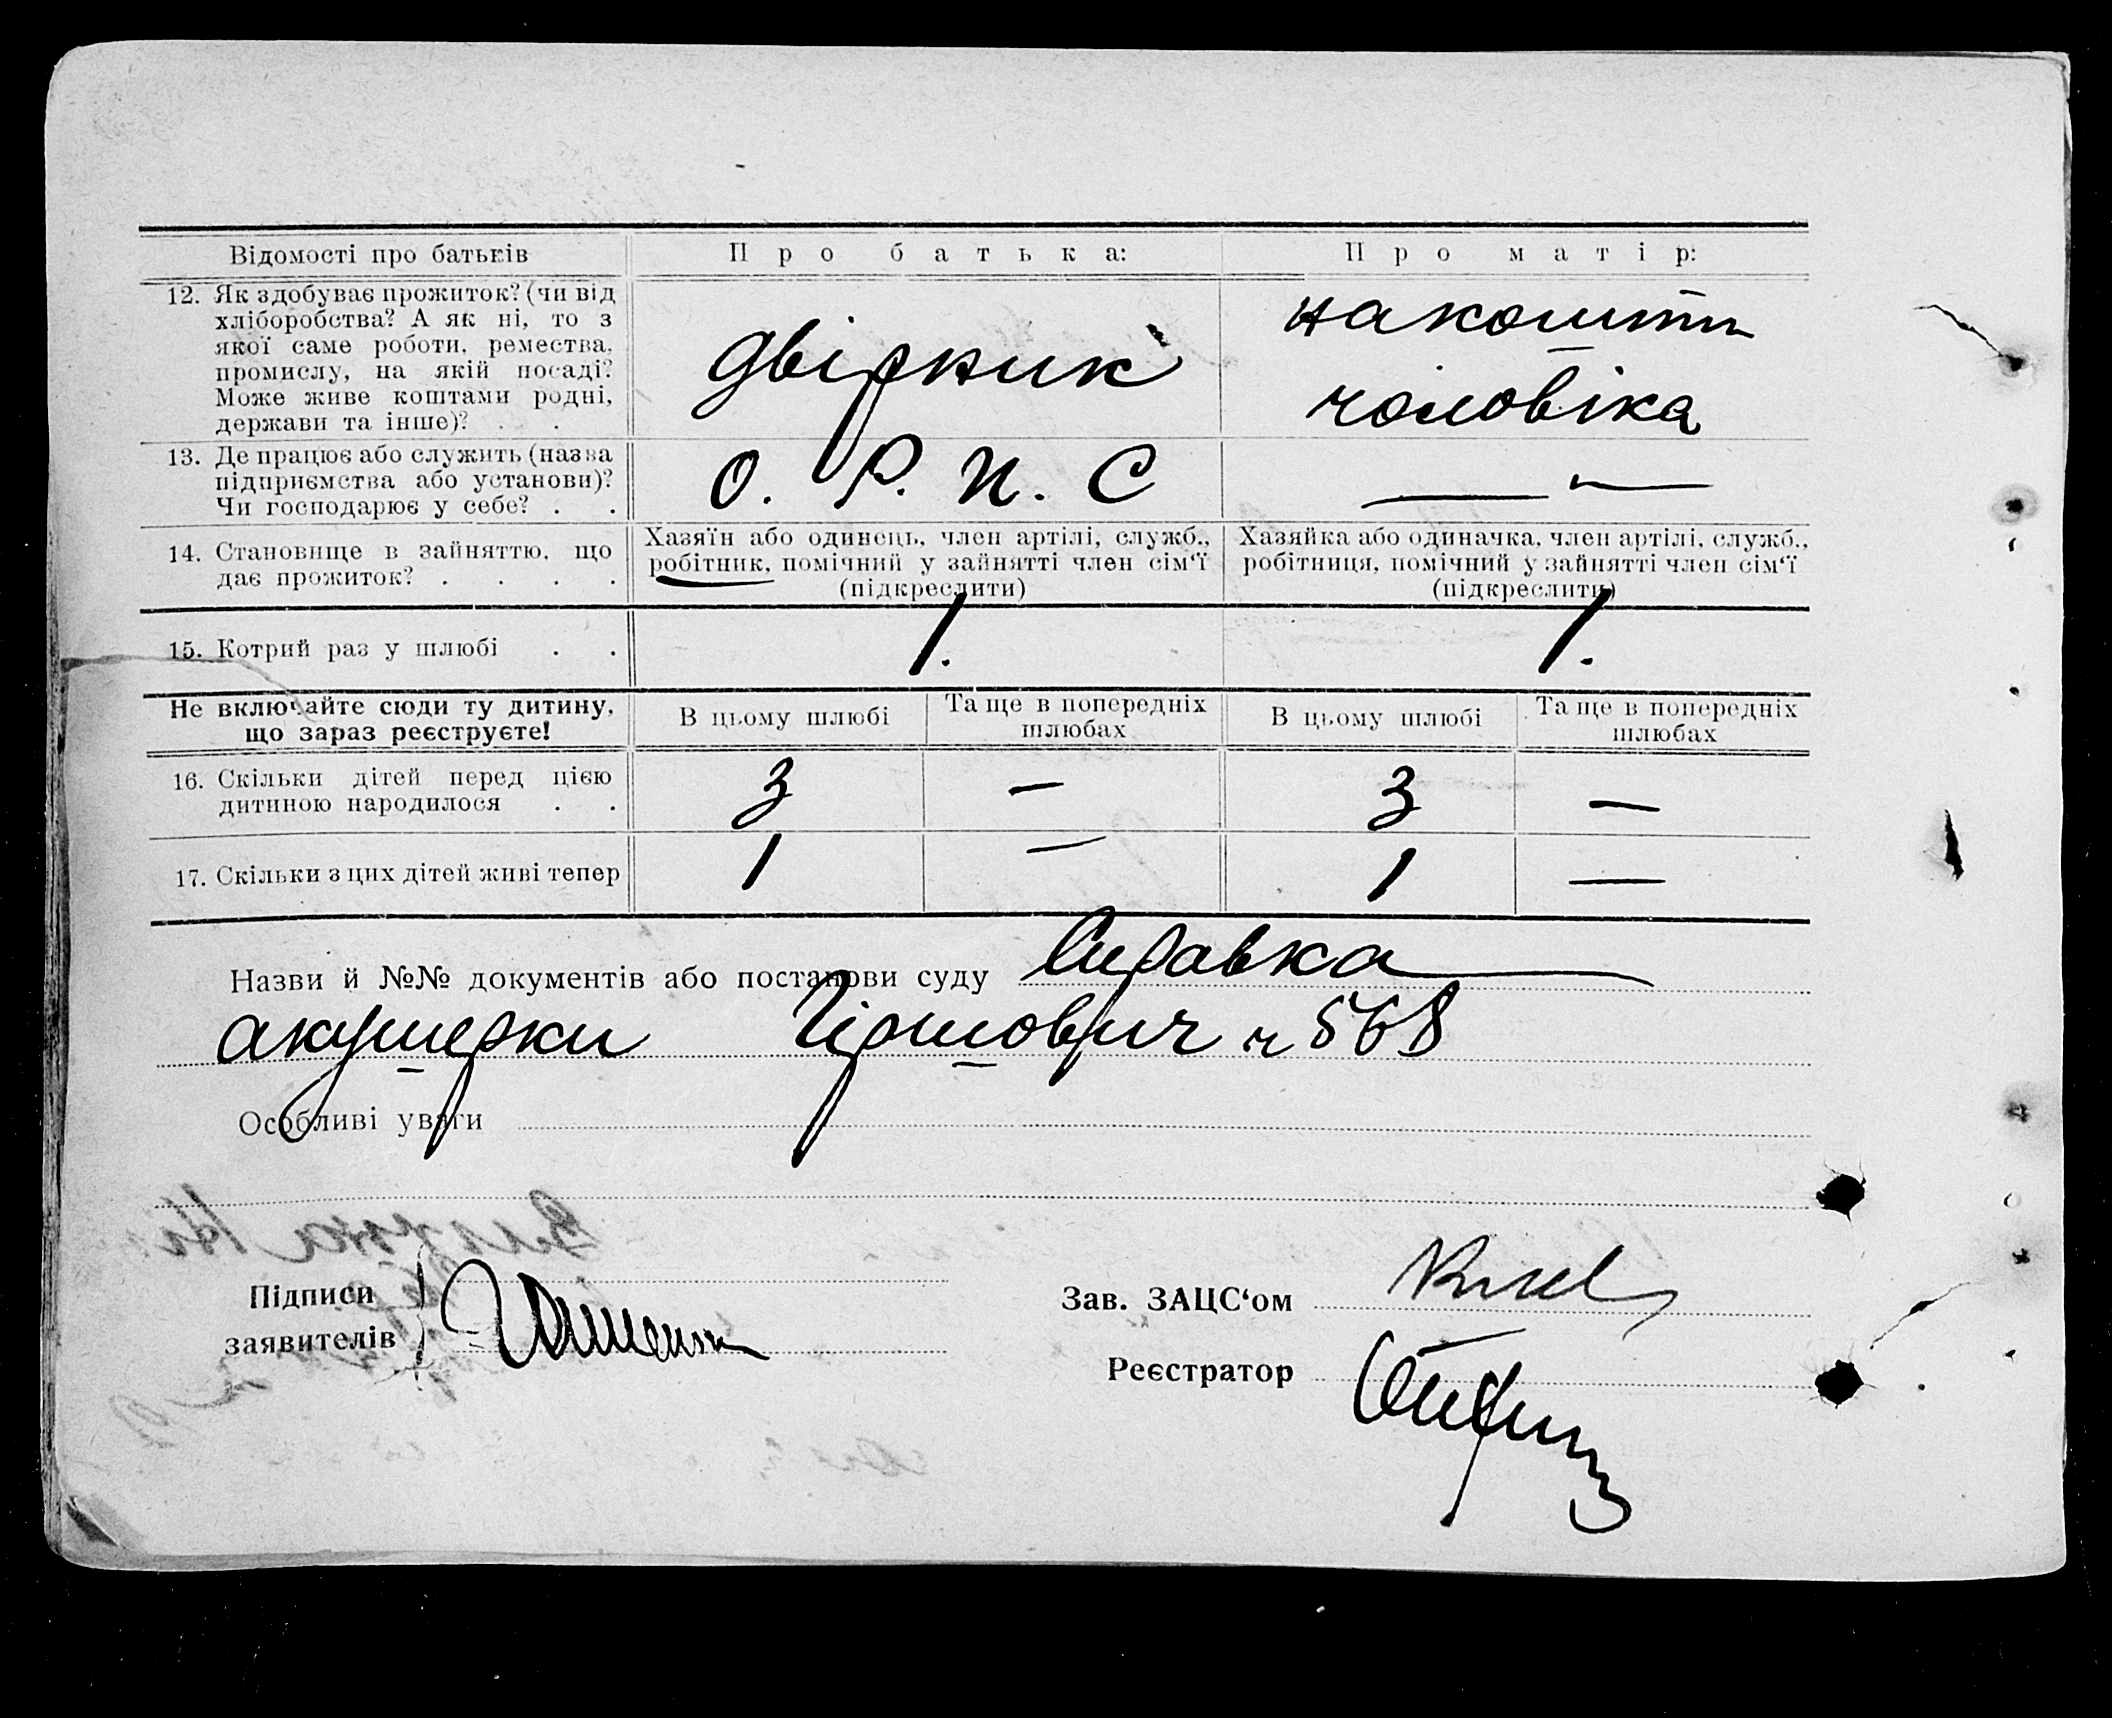 Відомості про батьків	П р о б а т ь к а:	П р о м а т і р:
12. Як здобуває прожиток? (чи від
хліборобства? А як ні, то з
якої саме роботи, ремества,
промислу, на якій посаді?
Може живе коштами родні,
держави та інше)? . .
двірник
на кошти
чоловіка
13. Де працює або служить (назва
підприємства або установи)?
Чи господарює у себе? . .
О. Р. П. С
— —
14. Становище в зайняттю, що
дає прожиток? . . . .
Хазяїн або одинець, член артілі, служб.,
робітник, помічний у зайнятті член сім‘ї
(підкреслити)
Хазяйка або одиначка, член артілі, служб.,
робітниця, помічний у зайнятті член сім‘ї
(підкреслити)
15. Котрий раз у шлюбі . .	1.	1.
Не включайте сюди ту дитину,
що зараз реєструєте!
В цьому шлюбі
Та ще в попередніх
шлюбах
В цьому шлюбі
Та ще в попередніх
шлюбах
16. Скільки дітей перед цією
дитиною народилося . .
3	—	3	—
17. Скільки з цих дітей живі тепер	1	—	1	—
Назви й №№ документів або постанови суду Справка
акушерки Гіршович ч 568
Особливі уваги
Підписи
заявителів
Зав. ЗАЦС‘ом
Реєстратор